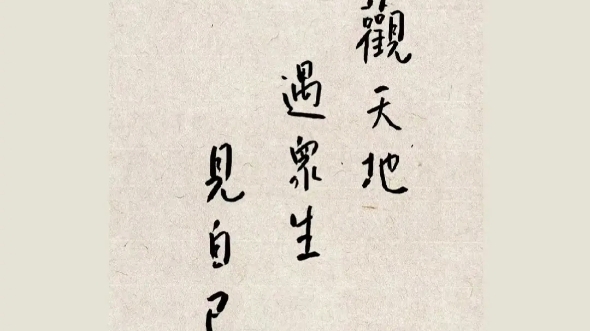 觀天地
遇眾生
見自己